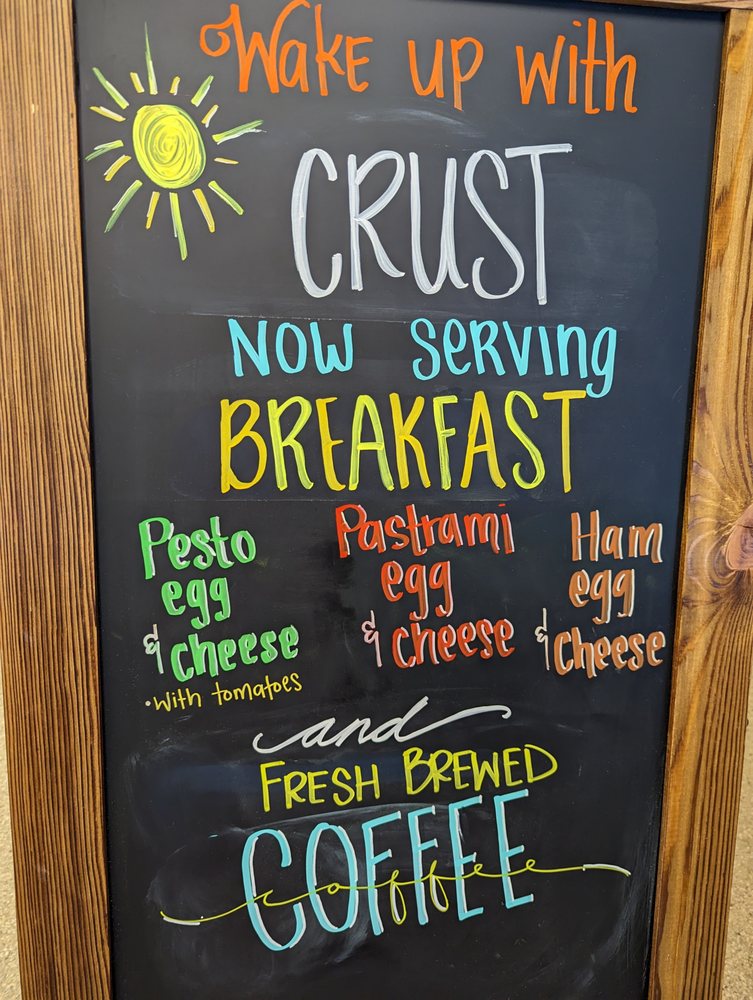 Wake up with
CRUST
NOW SERVING
BREAKFAST
Pesto
egg
& cheese
• with tomatoes
Pastrami
egg
& cheese
Ham
egg
& cheese
and
FRESH BREWED
COFFEE
coffee